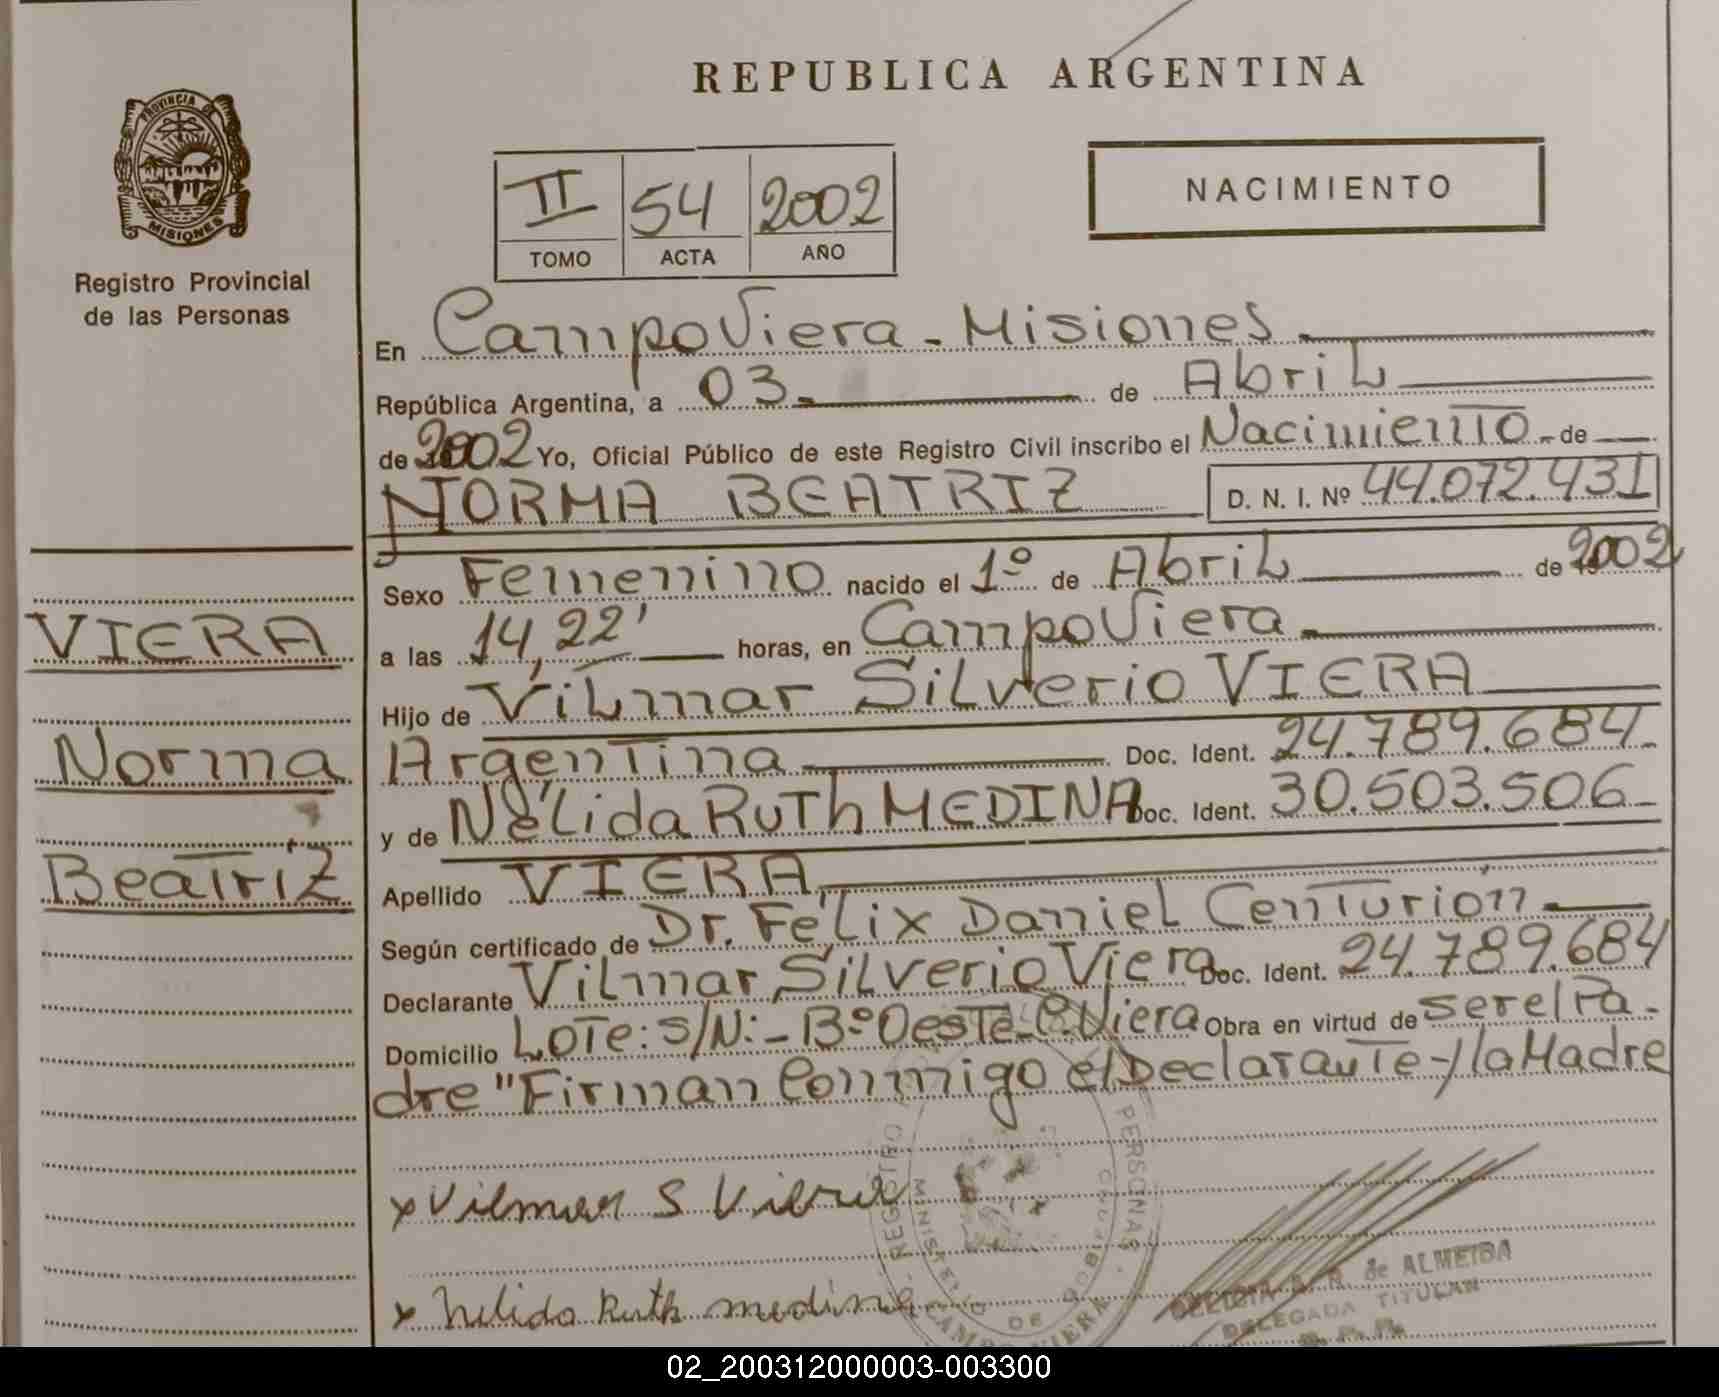 REPUBLICA ARGENTINA
PROVINCIA DE
MISIONES
Registro Provincial
de las Personas
II 54 2002
TOMO ACTA AÑO
NACIMIENTO
En Campo Viera - Misiones
República Argentina, a 03.- de Abril
de 2002 Yo, Oficial Público de este Registro Civil inscribo el Nacimiento - de
NORMA BEATRIZ D. N. I. Nº 44.072.431
Sexo Femenino nacido el 1º de Abril de 2002
VIERA
a las 14,22' horas, en Campo Viera
Hijo de Vilmar Silverio VIERA
Norma
Argentina Doc. Ident. 24.789.684-
y de Nélida RUTH MEDINA Doc. Ident. 30.503.506-
Beatriz
Apellido VIERA
Según certificado de Dr. Félix Daniel Centurión
Declarante Vilmar Silverio Viera Doc. Ident. 24.789.684
Domicilio Lote: S/N:- Bº Oeste - C. Viera Obra en virtud de ser el Pa-
dre "Firman Conmigo el Declarante -/ la Madre
x Vilmar S Viera
x Nelida Ruth medina
REGISTRO PERSONAS
MINISTERIO DE GOBIERNO
CAMPO VIERA
de ALMEIDA
DELEGADA TITULAR
02_200312000003-003300